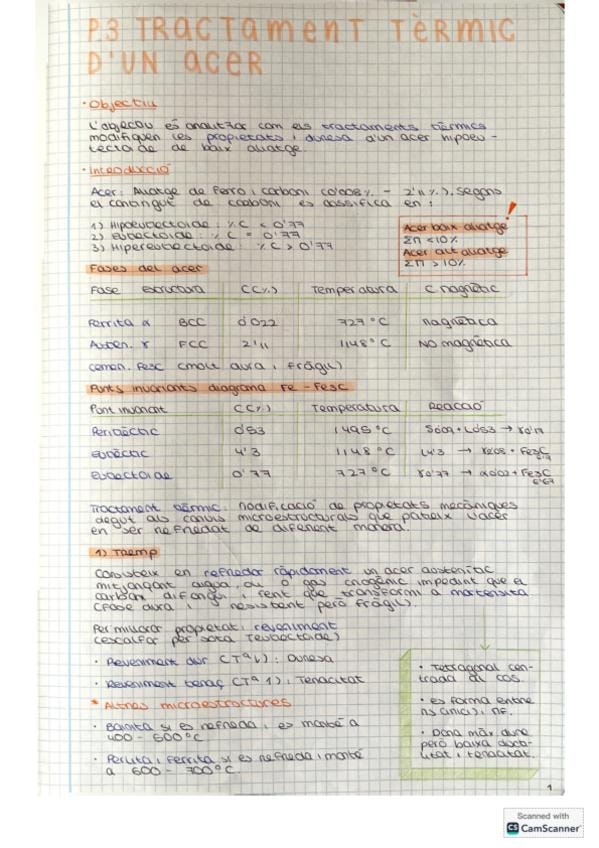 P.3 TRACTAMENT TÈRMIC
D'UN ACER
· Objectiu
L'objectiu és analitzar com els tractaments tèrmics
modifiquen les propietats i duresa d'un acer hipoeu-
tectoide de baix aliatge.
· Introducció
Acer: Aliatge de Ferro i carboni (0'008% - 2'11%). Segons
el contingut de carboni es classifica en:
1) Hipoeutectoide: %C < 0'77
2) Eutectoide: %C = 0'77
3) Hipereutectoide: %C > 0'77
!
Acer baix aliatge
Σn <10%
Acer alt aliatge
Σn >10%
Fases del acer
Fase estructura C(%) Temperatura C magnètic
Ferrita α BCC 0'022 727°C magnètica
Austen. γ FCC 2'11 1148°C NO magnètica
cemen. Fe3C (molt dura i fràgil)
Punts invariants diagrama Fe-Fe3C
Punt invariant C(%) Temperatura Reacció
Peritèctic 0'53 1495°C δ0'09 + L0'53 → γ0'17
Eutèctic 4'3 1148°C L4'3 → γ2'08 + Fe3C 6'67
Eutectoide 0'77 727°C γ0'77 → α0'02 + Fe3C 6'67
Tractament tèrmic: modificació de propietats mecàniques
degut als canvis microestructurals que pateix l'acer
en ser refredat de diferent manera.
1) Tremp
Consisteix en refredar ràpidament un acer austenític
mitjançant aigua, oli o gas criogènic impedint que el
carboni difongui i fent que transformi a martensita
(fase dura i resistent però fràgil).
Per millorar propietat: reveniment
(escalfar per sota Teutectoide)
· Reveniment dur (Tª↓): Duresa
· Reveniment tenaç (Tª↑): Tenacitat
* Altres microestructures
· Bainita si es refreda i es manté a
400 - 500°C
· Perlita i ferrita si es refreda i manté
a 600 - 700°C.
· Tetragonal cen-
trada al cos.
· es forma entre
Ms (inici) i Mf.
· Dona màx dure
però baixa ducti-
litat i tenacitat.
1
Scanned with
CS CamScanner